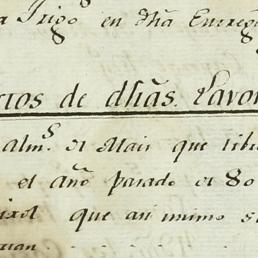 Trigo en dhã Entreg
cios de dhãs. Lavor
Alm.s el Mais que libr
el Año pasado el 80
que asi mismo s